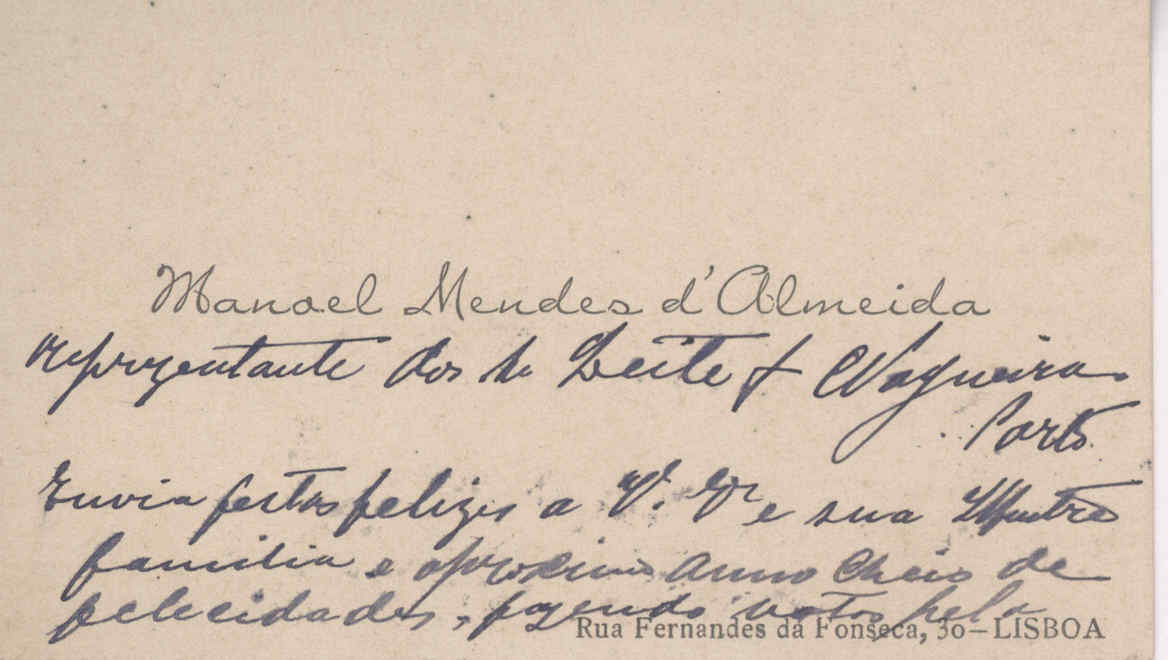 Manoel Mendes d'Almeida
reprezentante dos Leite & Nogueira
Porto
Envia festas felizes a V. e sua Illustre
familia e o proximo anno cheio de
felecidades, fazendo votos pela
Rua Fernandes da Fonseca, 30—LISBOA